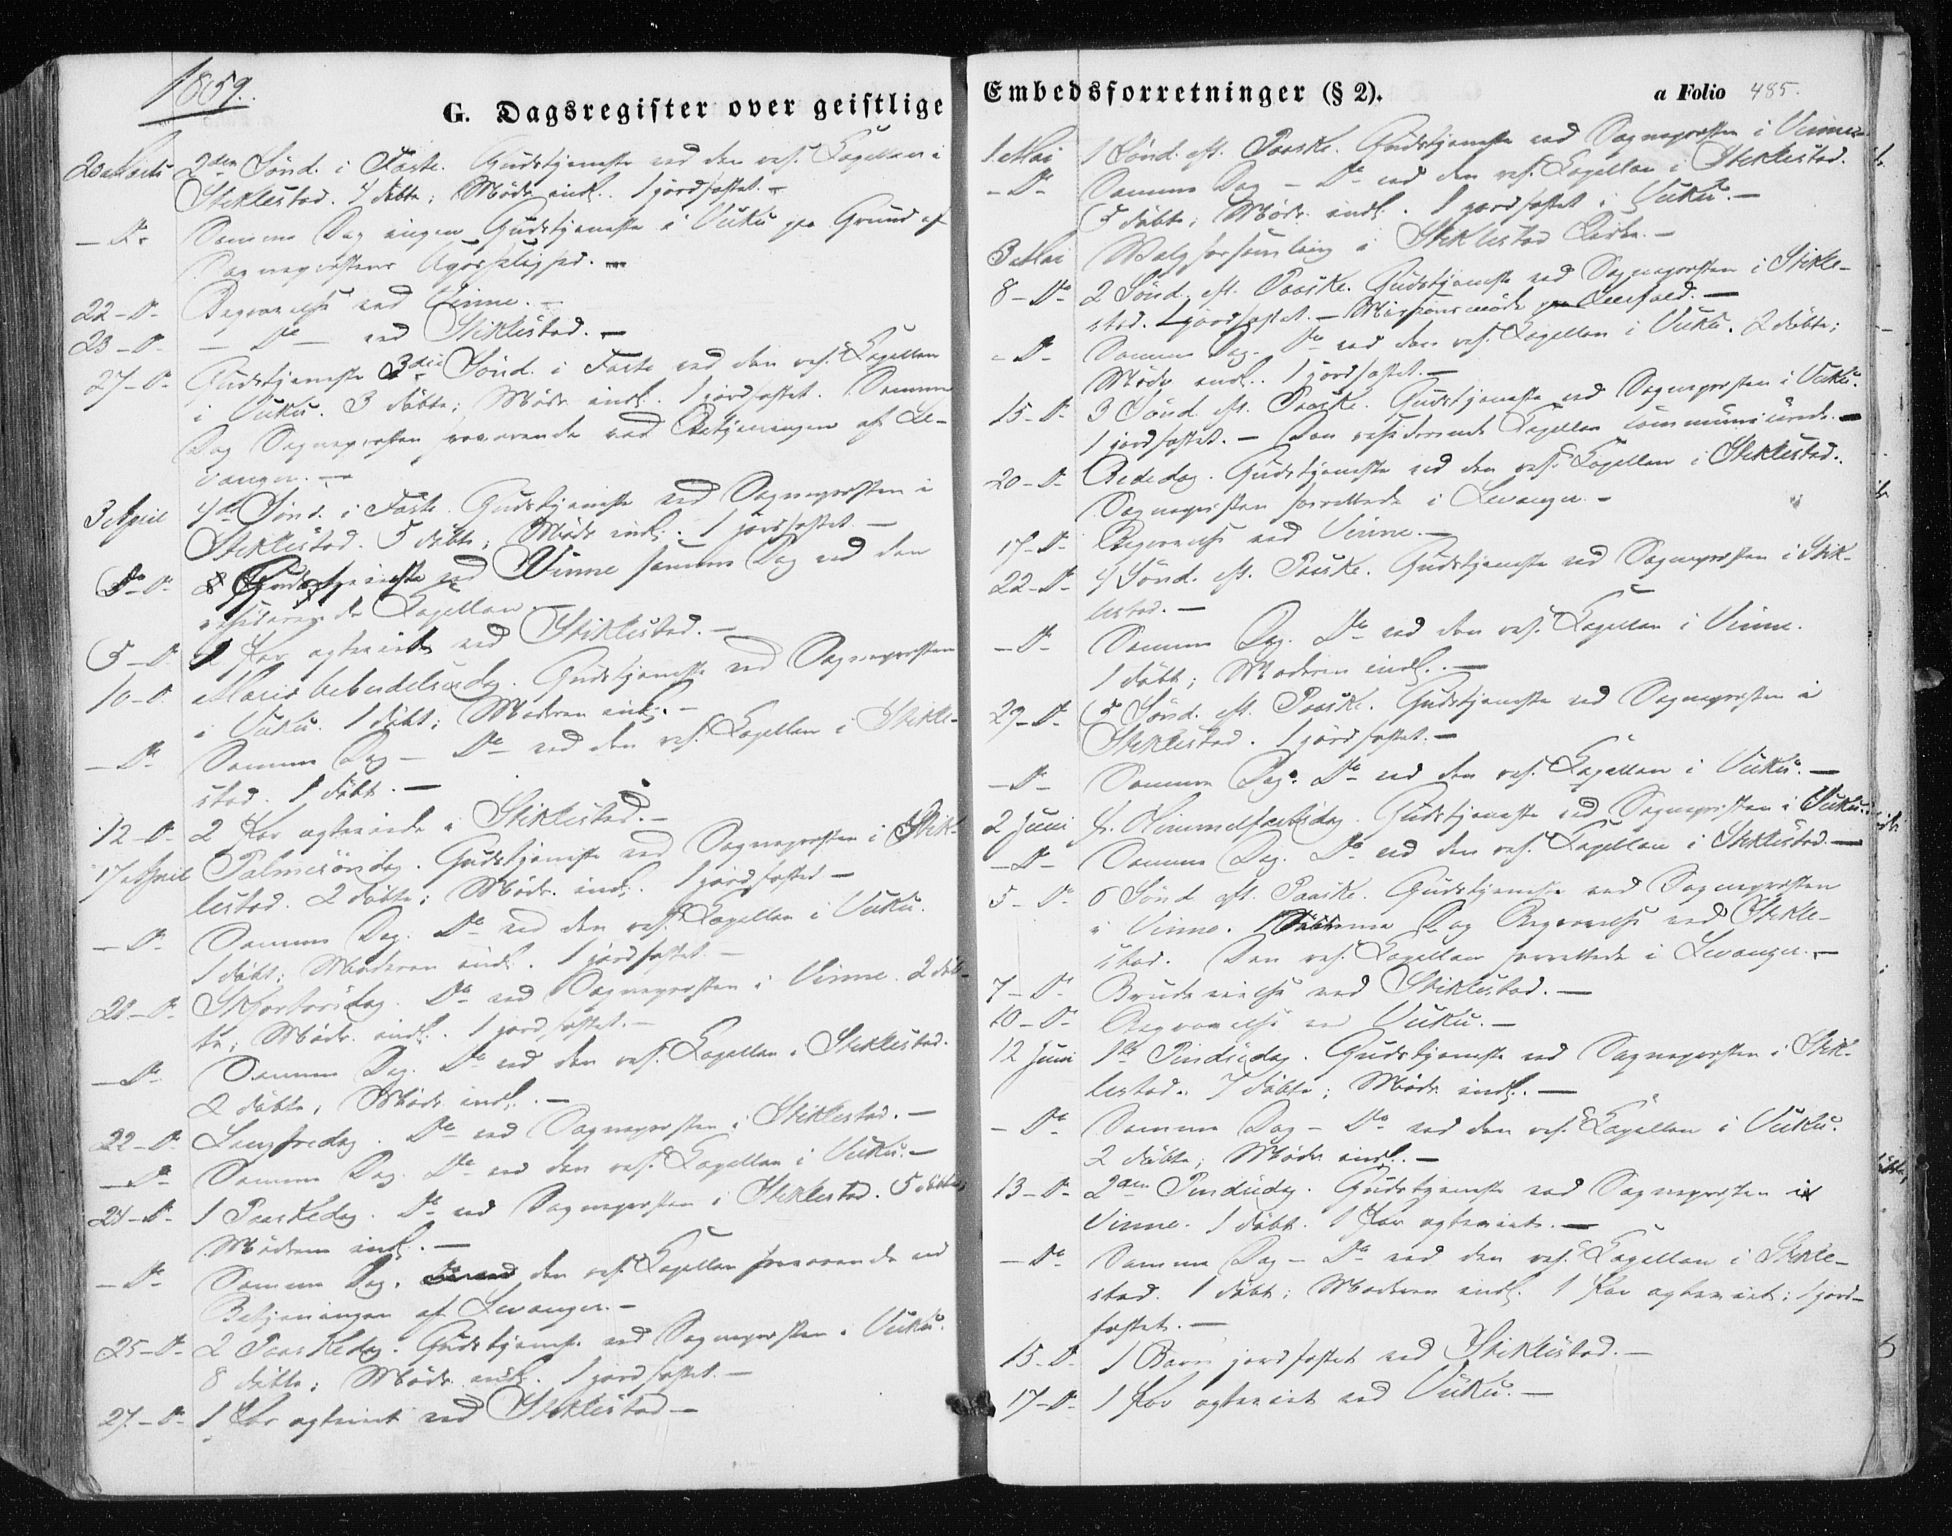 1859.
G. Dagsregister over geistlige
20 Marts 2den Sönd. i Faste. Gudstjeneste ved den res. Capellan i
Stiklestad. 4 döbte; Mödr. indl. 1 jordfæstet. —
— Do Samme Dag ingen Gudstjeneste i Vuku paa Grund af
Sognepræstens Upasselighed. —
22 – D. Begravelse ved Vinne. —
23 – D. — Do — ved Stiklestad. —
27 – D. Gudstjeneste 3die Sönd. i Faste ved den res. Capellan
i Vuku. 3 döbte; Mödr. indl. 1 jordfæstet. Samme
Dag Sognepræsten fraværende ved Betjeningen af Le-
vanger. —
3 April 4de Sönd. i Faste. Gudstjeneste ved Sognepræsten i
Stiklestad. 5 döbte; Mödr. indl. 1 jordfæstet. —
Do – D. Gudstjeneste ved Vinne samme Dag ved den
residerende Capellan. —
5 – D. 1 Par ægteviet ved Stiklestad. —
10 – D. Mariæ bebudelsesdag. Gudstjeneste ved Sognepræsten
i Vuku. 1 döbt; Moderen indl. —
— Do Samme Dag — Do ved den res. Capellan i Stikle-
stad. 1 döbt. —
12 – D. 2 Par ægteviede i Stiklestad. —
17 April Palmesöndag. Gudstjeneste ved Sognepræsten i Stik-
lestad. 2 döbte; Mödr. indl. 1 jordfæstet —
— Do Samme Dag. Do ved den res. Capellan i Vuku.
1 döbt; Moderen indl. 1 jordfæstet. —
21 – D. Skjærtorsdag. Do ved Sognepræsten i Vinne. 2 döb-
te; Mödr. indl. 1 jordfæstet. —
— Do Samme Dag. Do ved den res. Capellan i Stiklestad.
2 döbte; Mödr. indl. —
22 – D. Langfredag. Do ved Sognepræsten i Stiklestad. —
— Do Samme Dag. Do ved den res. Capellan i Vuku. —
24 – D. 1 Paaskedag. Do ved Sognepræsten i Stiklestad. 5 döbte;
Mödrene indl. —
— Do Samme Dag. den res. Capellan fraværende ved
Betjeningen af Levanger. —
25 – D. 2 Paaskedag. Gudstjeneste ved Sognepræsten i Vuku.
8 döbte; Mödr. indl. 1 jordfæstet. —
27 – D. 1 Par ægteviet ved Stiklestad —
Embedsforretninger (§ 2).
a Folio 485.
1 Mai 1 Sönd. eft. Paaske. Gudstjeneste ved Sognepræsten i Vinne.
— Do Samme Dag — Do ved den res. Capellan i Stiklestad.
5 döbte; Mödr. indl. 1 jordfæstet i Vuku. —
3 Mai Valgforsamling i Stiklestad Kirke. —
8 – Do 2 Sönd. eft. Paaske. Gudstjeneste ved Sognepræsten i Stikle-
stad. 1 jordfæstet. — Missionsmöde paa —
– Do Samme Dag. Do ved den res. Capellan i Vuku. 2 döbte;
Mödr. indl. 1 jordfæstet. —
15 – D. 3 Sönd. eft. Paaske. Gudstjeneste ved Sognepræsten i Vuku.
1 jordfæstet. — Den residerende Capellan communicerede. —
20 – D. Bededag. Gudstjeneste ved den res. Capellan i Stiklestad.
Sognepræsten forrettede i Levanger. —
17 – D. Begravelse ved Vinne. —
22 – D. 4 Sönd. eft. Paaske. Gudstjeneste ved Sognepræsten i Stik-
lestad. —
— Do Samme Dag. Do ved den res. Capellan i Vinne.
1 döbt; Moderen indl. —
29 – D. 5 Sönd. eft. Paaske. Gudstjeneste ved Sognepræsten i
Stiklestad. 1 jordfæstet. —
— Do Samme Dag. Do ved den res. Capellan i Vuku. —
2 Juni Himmelfartsdag. Gudstjeneste ved Sognepræsten i Vuku.
— Do Samme Dag. Do ved den res. Capellan i Stiklestad. —
5 – D. 6 Sönd. eft. Paaske. Gudstjeneste ved Sognepræsten
i Vinne. Samme Dag Begravelse ved Stikle-
stad. Den res. Capellan forrettede i Levanger. —
7 – D. Brudevielse ved Stiklestad. —
10 – D. Begravelse ved Vuku. —
12 Juni 1ste Pindsedag. Gudstjeneste ved Sognepræsten i Stik-
lestad. 7 döbte; Mödr. indl. —
— Do Samme Dag — Do ved den res. Capellan i Vuku.
2 döbte; Mödr. indl. —
13 – D. 2den Pindsedag. Gudstjeneste ved Sognepræsten i
Vinne. 1 döbt. 1 Par ægteviet. —
— Do Samme Dag — Do ved den res. Capellan i Stikle-
stad. 1 döbt; Moderen indl. 1 Par ægteviet; 1 jord-
fæstet. —
15 – D. 1 Barn jordfæstet ved Stiklestad. —
17 – D. 1 Par ægteviet ved Vuku. —